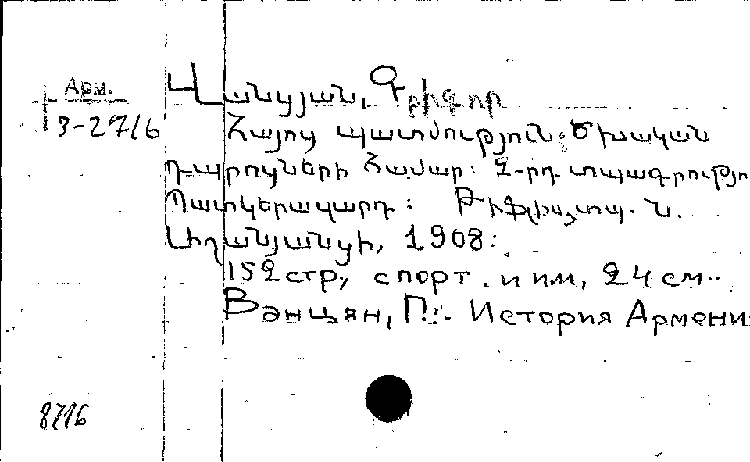 Арм.
3-2716
Վանցյան, Գրիգոր
Հայոց պատմություն: Ծխական
դպրոցների համար: 2-րդ տպագրությո
Պատկերազարդ: Թիֆլիս, տպ. Ն.
Աղանյանցի, 1908:
152 стр, с порт. и им, 24 см.
Ванцян, Г. История Армени
8716